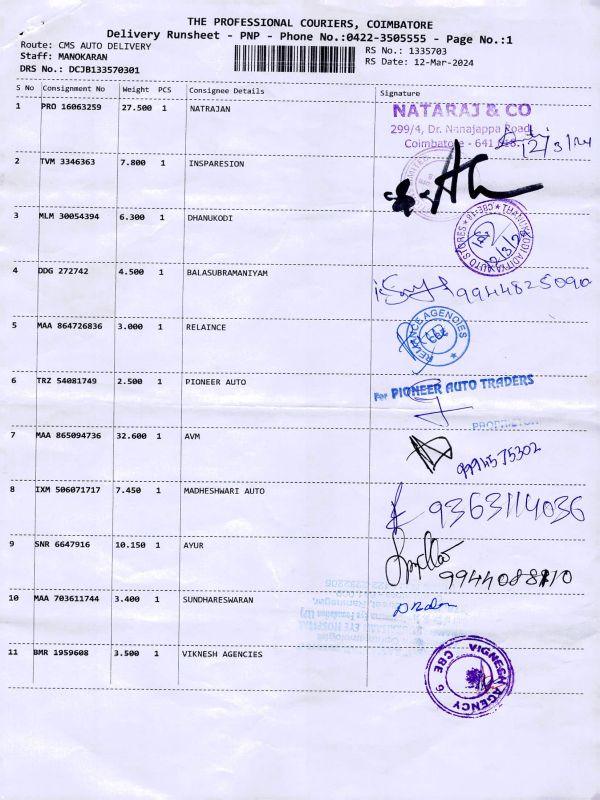 THE PROFESSIONAL COURIERS, COIMBATORE
Delivery Runsheet - PNP - Phone No.:0422-3505555 - Page No.:1
Route: CMS AUTO DELIVERY
Staff: MANOKARAN
DRS No.: DCJB133570301
RS No.: 1335703
RS Date: 12-Mar-2024
S No Consignment No Weight PCS Consignee Details Signature
1 PRO 16063259 27.500 1 NATRJAN
NATARAJ & CO
299/4, Dr. Nanajappa Road,
Coimbatore - 641 018.
12/3/24
2 TVM 3346363 7.800 1 INSPARESION
3 MLM 30054394 6.300 1 DHANUKODI
4 DDG 272742 4.500 1 BALASUBRAMANIYAM
9944825090
5 MAA 864726836 3.000 1 RELAINCE
RELIANCE AGENCIES
6 TRZ 54081749 2.500 1 PIONEER AUTO
For PIONEER AUTO TRADERS
PROPRIETOR
7 MAA 865094736 32.600 1 AVM
8 IXM 506071717 7.450 1 MADHESHWARI AUTO
9363114036
9 SNR 6647916 10.150 1 AYUR
10 MAA 703611744 3.400 1 SUNDHARESWARAN
11 BMR 1959608 3.500 1 VIKNESH AGENCIES
VIGNESH AGENCY
CBE 6